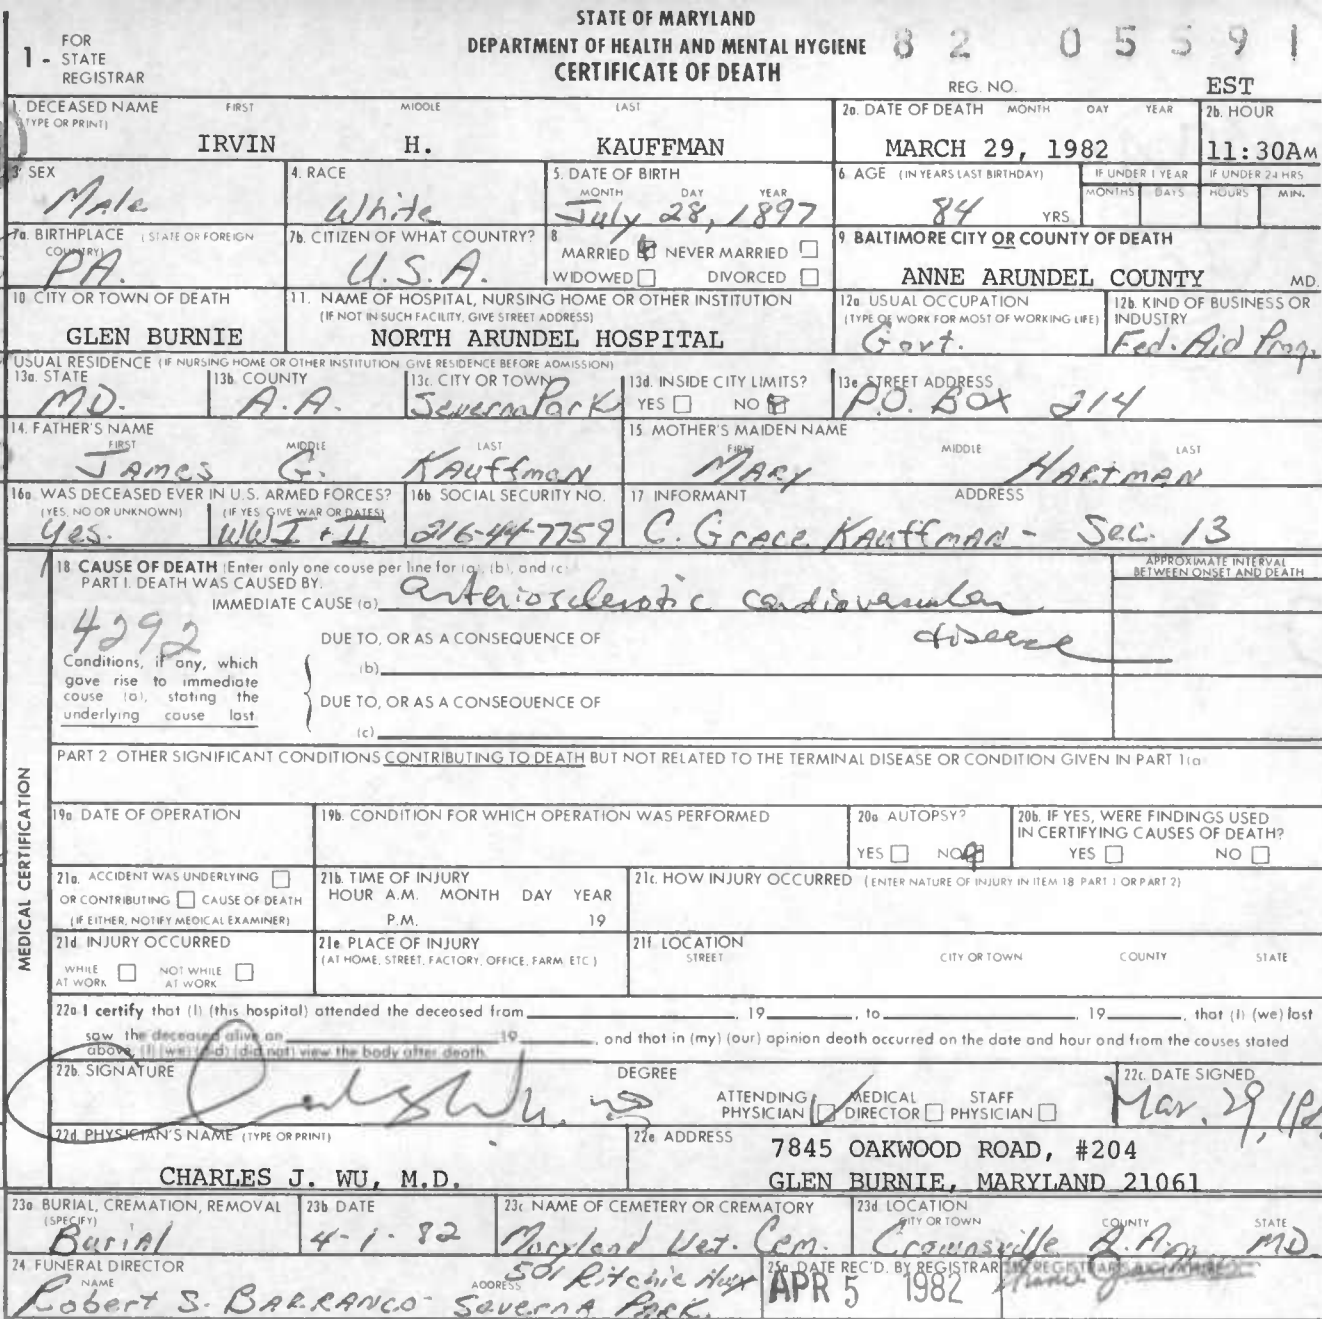 STATE OF MARYLAND
DEPARTMENT OF HEALTH AND MENTAL HYGIENE
CERTIFICATE OF DEATH
1 - FOR STATE REGISTRAR
82 05591
REG. NO.
EST
1. DECEASED NAME (TYPE OR PRINT) FIRST MIDDLE LAST
IRVIN H. KAUFFMAN
2a. DATE OF DEATH MONTH DAY YEAR
MARCH 29, 1982
2b. HOUR
11:30AM
3. SEX
Male
4. RACE
White
5. DATE OF BIRTH MONTH DAY YEAR
July 28, 1897
6. AGE (IN YEARS LAST BIRTHDAY)
84 YRS
IF UNDER 1 YEAR MONTHS DAYS
IF UNDER 24 HRS HOURS MIN.
7a. BIRTHPLACE (STATE OR FOREIGN COUNTRY)
PA.
7b. CITIZEN OF WHAT COUNTRY?
U.S.A.
8. MARRIED NEVER MARRIED
WIDOWED DIVORCED
9. BALTIMORE CITY OR COUNTY OF DEATH
ANNE ARUNDEL COUNTY MD.
10 CITY OR TOWN OF DEATH
GLEN BURNIE
11. NAME OF HOSPITAL, NURSING HOME OR OTHER INSTITUTION
(IF NOT IN SUCH FACILITY, GIVE STREET ADDRESS)
NORTH ARUNDEL HOSPITAL
12a. USUAL OCCUPATION
(TYPE OF WORK FOR MOST OF WORKING LIFE)
Govt.
12b. KIND OF BUSINESS OR INDUSTRY
Fed. Aid Prog.
USUAL RESIDENCE (IF NURSING HOME OR OTHER INSTITUTION GIVE RESIDENCE BEFORE ADMISSION)
13a. STATE
MD.
13b COUNTY
A.A.
13c. CITY OR TOWN
Severna Park
13d. INSIDE CITY LIMITS?
YES NO
13e STREET ADDRESS
P.O. BOX 214
14. FATHER'S NAME FIRST MIDDLE LAST
James G. Kauffman
15 MOTHER'S MAIDEN NAME FIRST MIDDLE LAST
Mary Hartman
16a WAS DECEASED EVER IN U.S. ARMED FORCES?
(YES, NO OR UNKNOWN) (IF YES GIVE WAR OR DATES)
Yes. WWI + II
16b SOCIAL SECURITY NO.
216-44-7759
17 INFORMANT ADDRESS
C. Grace Kauffman - Sec. 13
MEDICAL CERTIFICATION
18 CAUSE OF DEATH (Enter only one cause per line for (a), (b), and (c)
PART I. DEATH WAS CAUSED BY.
IMMEDIATE CAUSE (a) arteriosclerotic cardiovascular
disease
APPROXIMATE INTERVAL BETWEEN ONSET AND DEATH
4292
Conditions, if any, which
gave rise to immediate
cause (a), stating the
underlying cause last
DUE TO, OR AS A CONSEQUENCE OF
(b)
DUE TO, OR AS A CONSEQUENCE OF
(c)
PART 2 OTHER SIGNIFICANT CONDITIONS CONTRIBUTING TO DEATH BUT NOT RELATED TO THE TERMINAL DISEASE OR CONDITION GIVEN IN PART 1(a)
19a. DATE OF OPERATION
19b. CONDITION FOR WHICH OPERATION WAS PERFORMED
20a AUTOPSY?
YES NO
20b. IF YES, WERE FINDINGS USED
IN CERTIFYING CAUSES OF DEATH?
YES NO
21a. ACCIDENT WAS UNDERLYING
OR CONTRIBUTING CAUSE OF DEATH
(IF EITHER, NOTIFY MEDICAL EXAMINER)
21b. TIME OF INJURY
HOUR A.M. MONTH DAY YEAR
P.M. 19
21c. HOW INJURY OCCURRED (ENTER NATURE OF INJURY IN ITEM 18 PART 1 OR PART 2)
21d INJURY OCCURRED
WHILE AT WORK NOT WHILE AT WORK
21e PLACE OF INJURY
(AT HOME, STREET, FACTORY, OFFICE, FARM, ETC)
21f LOCATION
STREET CITY OR TOWN COUNTY STATE
22a I certify that (I) (this hospital) attended the deceased from 19 , to 19 , that (I) (we) last
saw the deceased alive on 19 , and that in (my) (our) opinion death occurred on the date and hour and from the causes stated
above, (I) (we) (did) (did not) view the body after death.
22b. SIGNATURE DEGREE
ATTENDING PHYSICIAN MEDICAL DIRECTOR STAFF PHYSICIAN
22c. DATE SIGNED
Mar. 29, 198
22d. PHYSICIAN'S NAME (TYPE OR PRINT)
CHARLES J. WU, M.D.
22e ADDRESS
7845 OAKWOOD ROAD, #204
GLEN BURNIE, MARYLAND 21061
23a BURIAL, CREMATION, REMOVAL (SPECIFY)
Burial
23b DATE
4-1-82
23c NAME OF CEMETERY OR CREMATORY
Maryland Vet. Cem.
23d LOCATION CITY OR TOWN COUNTY STATE
Crownsville A.A. MD.
24 FUNERAL DIRECTOR
NAME ADDRESS
Robert S. Barranco 501 Ritchie Hwy
Severna Park.
25a DATE REC'D. BY REGISTRAR
APR 5 1982
REGISTRAR'S SIGNATURE